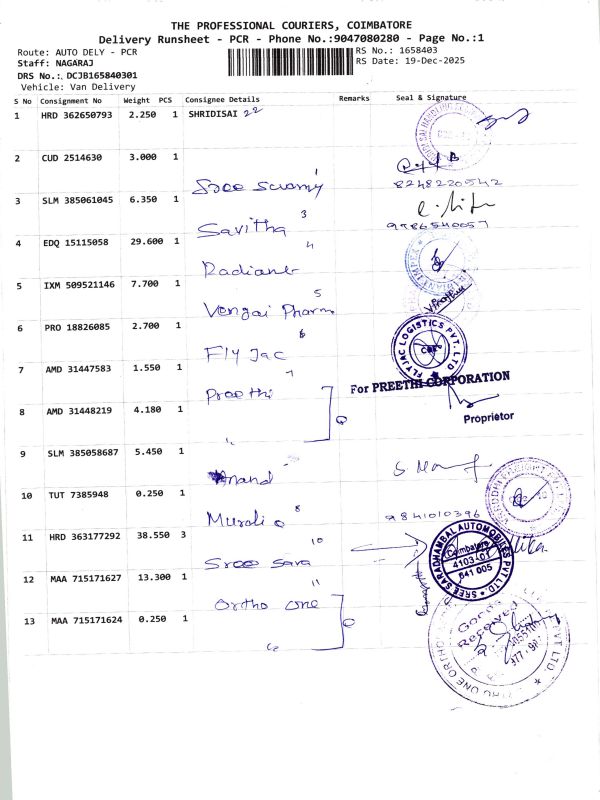 THE PROFESSIONAL COURIERS, COIMBATORE
Delivery Runsheet - PCR - Phone No.:9047080280 - Page No.:1
Route: AUTO DELY - PCR
RS No.: 1658403
Staff: NAGARAJ
RS Date: 19-Dec-2025
DRS No.: DCJB165840301
Vehicle: Van Delivery
S No Consignment No Weight PCS Consignee Details Remarks Seal & Signature
1 HRD 362650793 2.250 1 SHRIDISAI 22
2 CUD 2514630 3.000 1
Sree Swamy 1
8248220542
3 SLM 385061045 6.350 1
Savitha 3
9486540057
4 EDQ 15115058 29.600 1
Radiant 4
5 IXM 509521146 7.700 1
Vengai Pharma 5
6 PRO 18826085 2.700 1
Fly Jac 6
FLYJAC LOGISTICS PVT. LTD.
7 AMD 31447583 1.550 1
Preethi 7
For PREETHI CORPORATION
Proprietor
8 AMD 31448219 4.180 1
9 SLM 385058687 5.450 1
Anand
10 TUT 7385948 0.250 1
Murali 8
9841010396
11 HRD 363177292 38.550 3
Sree Sara 10
SREE SARADHAMBAL AUTOMOBILES PVT LTD
Coimbatore
4103-01
641 005
12 MAA 715171627 13.300 1
Ortho One 11
13 MAA 715171624 0.250 1
Goods
Received